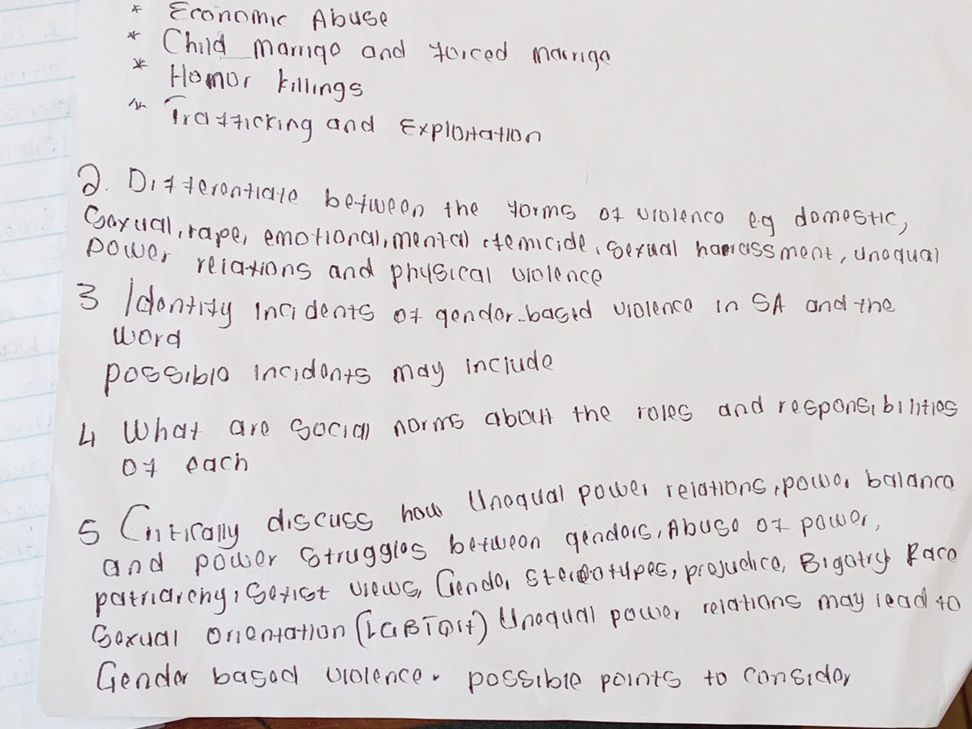 * Economic Abuse
* Child marrige and forced marrige
* Honor killings
* Trafficking and Exploitation
2. Differentiate between the forms of violence eg domestic,
Sexual, rape, emotional, mental, femicide, sexual harrassment, unequal
power relations and physical violence
3 Identify incidents of gender-based violence in SA and the
word
possible incidents may include
4 What are social norms about the roles and responsibilities
of each
5 Critically discuss how Unequal power relations, power balance
and power struggles between genders, Abuse of power,
patriarchy, sexist views, Gender stereotypes, prejudice, Bigotry Race
sexual orientation (LGBTQI+) Unequal power relations may lead to
Gender based violence. possible points to consider